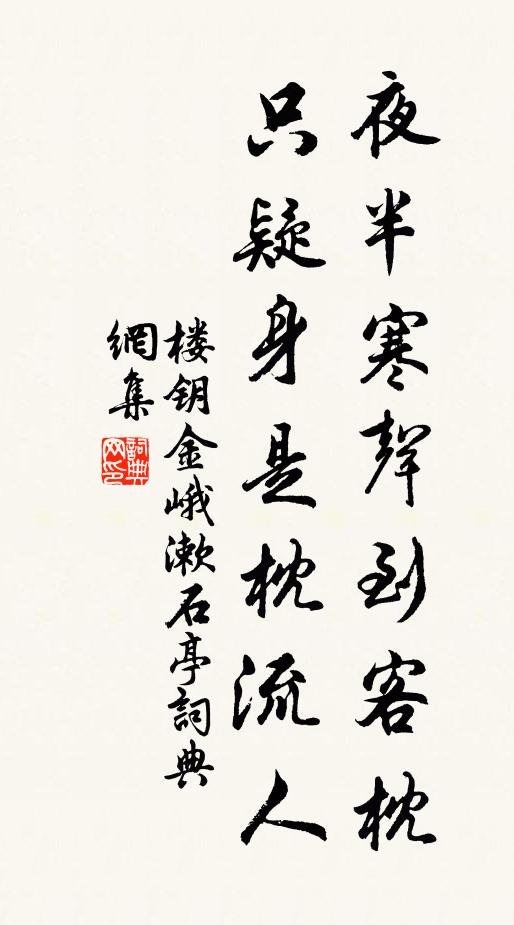 夜半寒聲到客枕
只疑身是枕流人
楼钥金峨漱石亭詞典
網集
詞典
网印